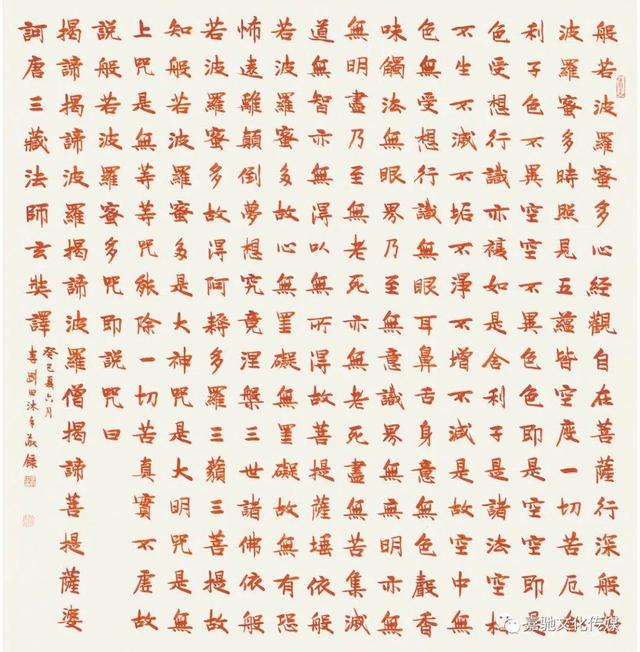 般若波羅蜜多心經觀自在菩薩行深般若
波羅蜜多時照見五蘊皆空度一切苦厄舍
利子色不異空空不異色即是空空即是
色受想行識亦復如是舍利子是諸法空相
不生不滅不垢不淨不增不減是故空中無
色無受想行識無眼耳鼻舌身意無色聲香
味觸法無眼界乃至無意識界無無明亦無
無明盡乃至無老死亦無老死盡無苦集滅
道無智亦無得以無所得故菩提薩埵依般
若波羅蜜多故心無罣礙無罣礙故無有恐
怖遠離顛倒夢想究竟涅槃三世諸佛依般
若波羅蜜多故得阿耨多羅三藐三菩提故
知般若波羅蜜多是大神咒是大明咒是無
上咒是無等等咒能除一切苦真實不虛故
說般若波羅蜜多咒即說咒曰
揭諦揭諦波羅揭諦波羅僧揭諦菩提薩婆
訶唐三藏法師玄奘譯
癸巳夏六月
李剛田沐手敬錄
嘉驰文化传媒